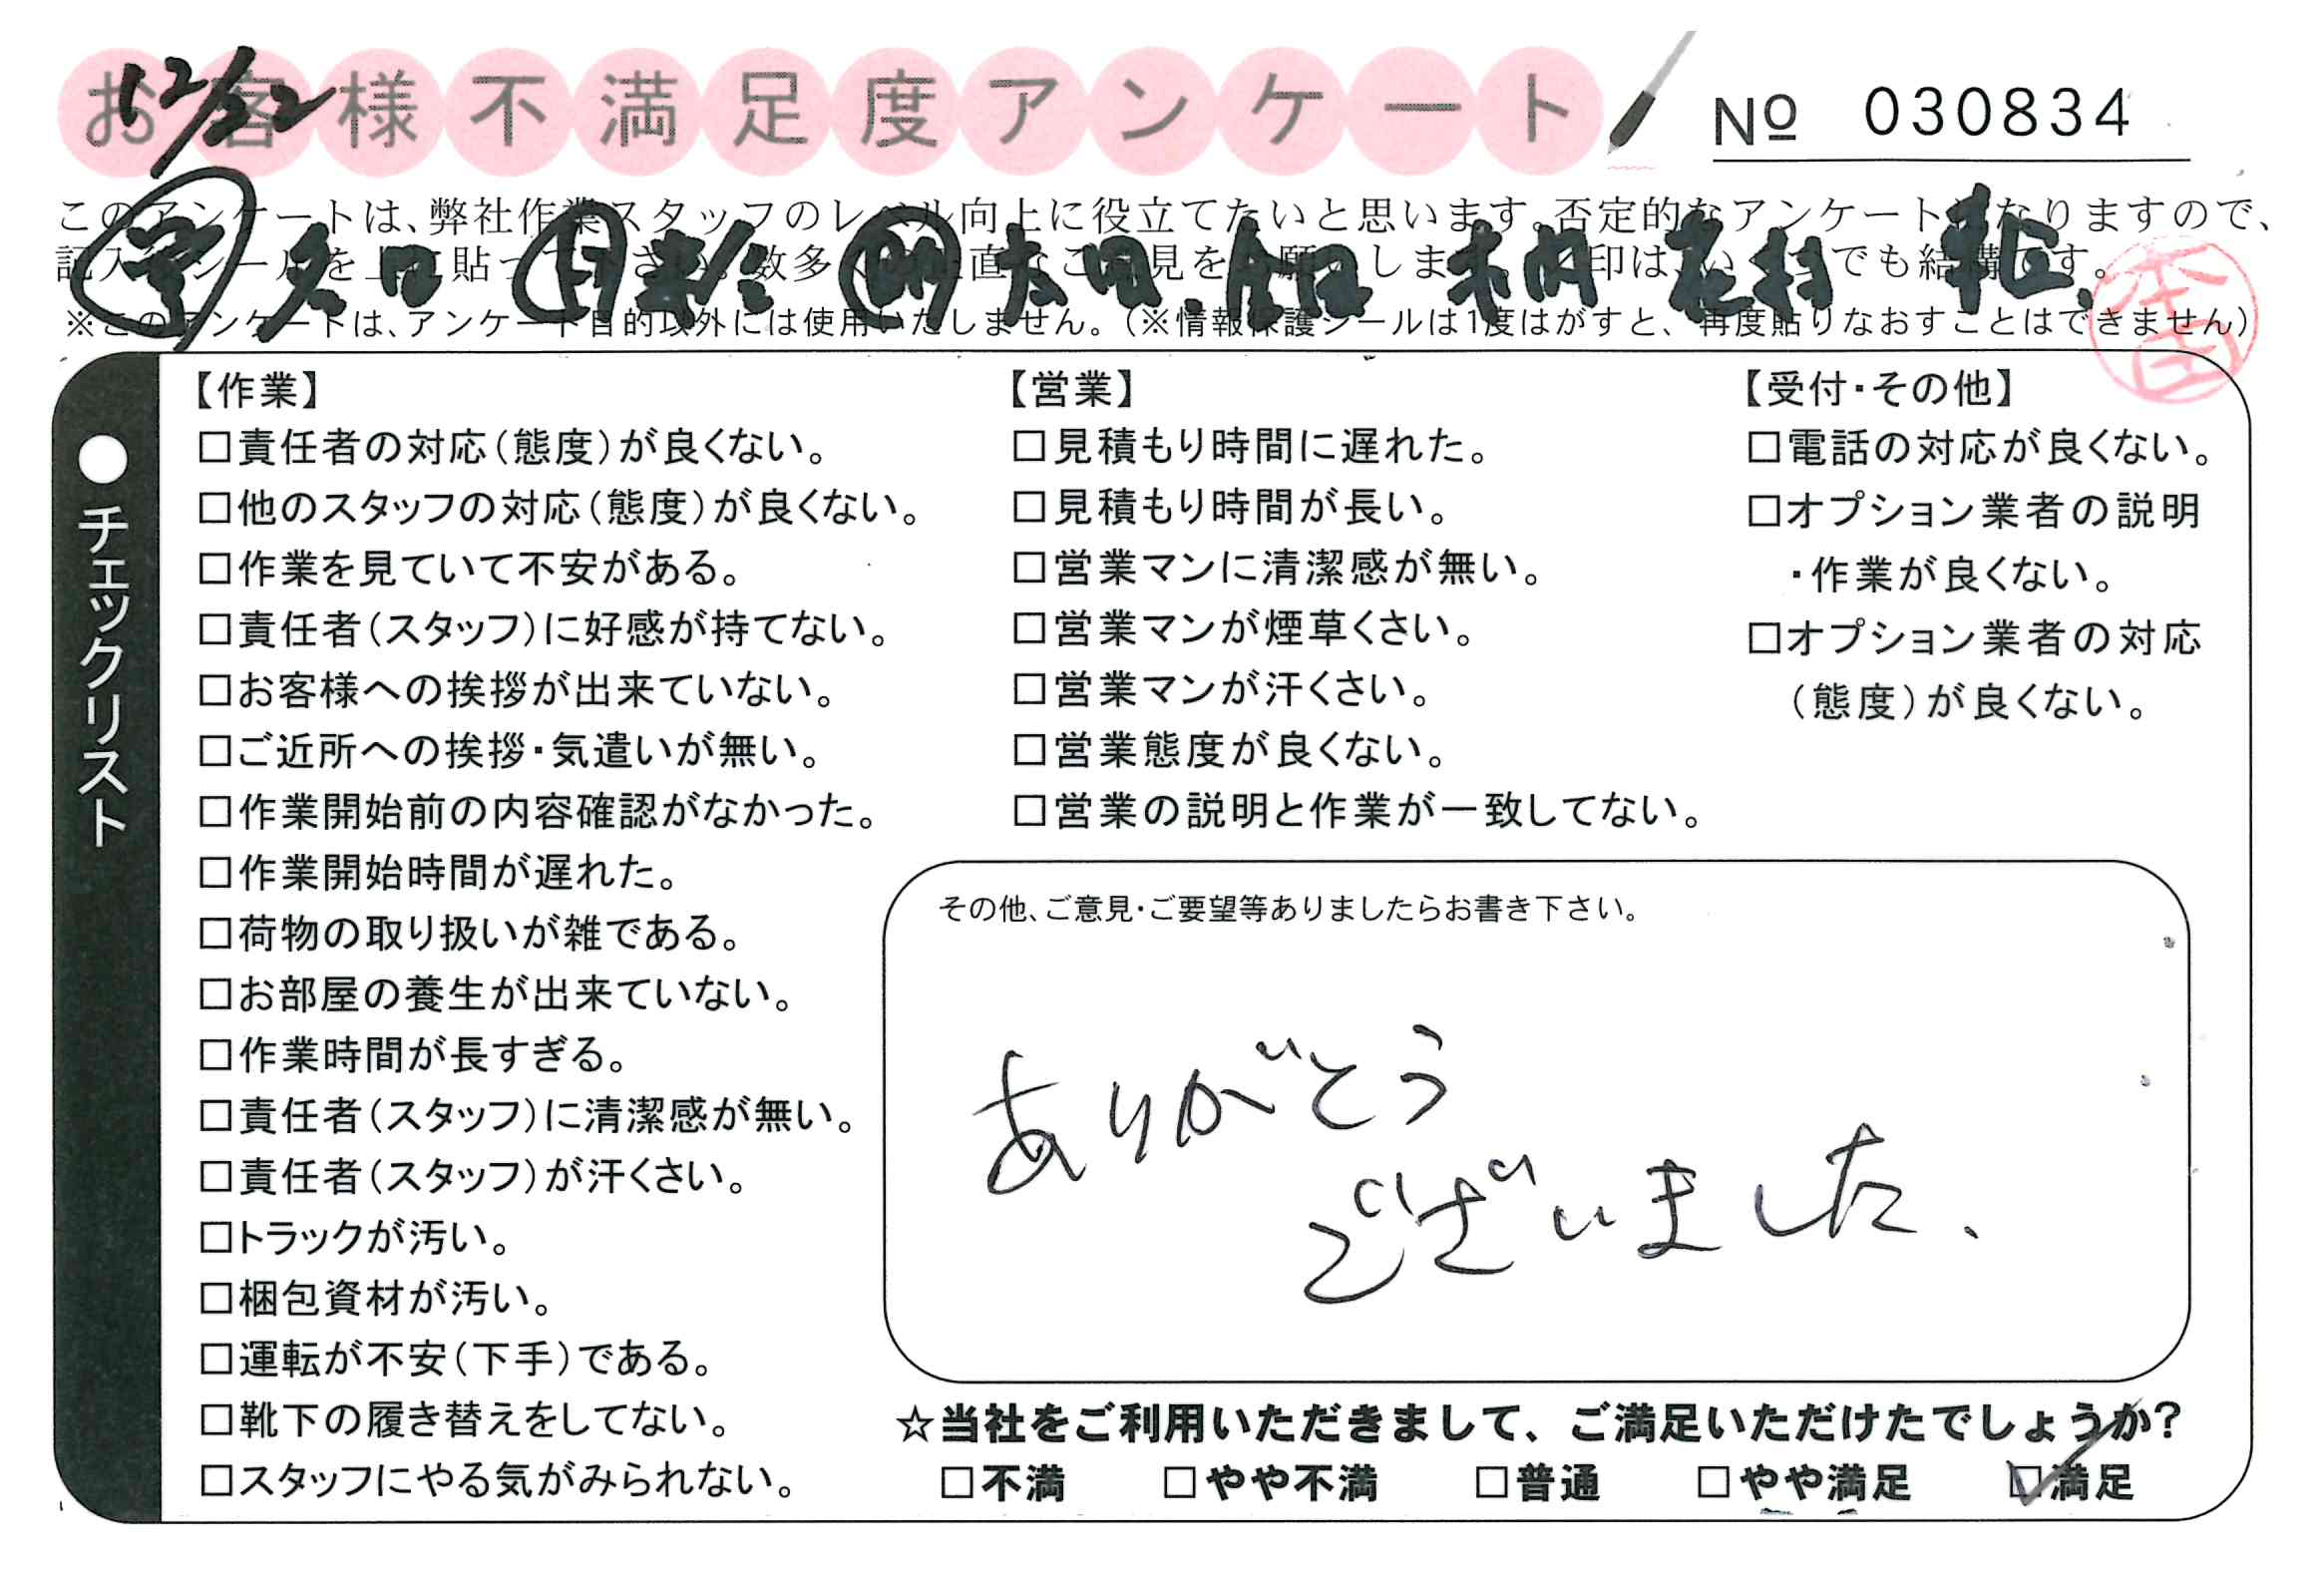 12/22
お客様不満足度アンケート
Nº 030834
このアンケートは、弊社作業スタッフのレベル向上に役立てたいと思います。否定的なアンケートになりますので、
※このアンケートは、アンケート目的以外には使用いたしません。（※情報保護シールは1度はがすと、再度貼りなおすことはできません）
本田
●チェックリスト
【作業】
□責任者の対応（態度）が良くない。
□他のスタッフの対応（態度）が良くない。
□作業を見ていて不安がある。
□責任者（スタッフ）に好感が持てない。
□お客様への挨拶が出来ていない。
□ご近所への挨拶・気遣いが無い。
□作業開始前の内容確認がなかった。
□作業開始時間が遅れた。
□荷物の取り扱いが雑である。
□お部屋の養生が出来ていない。
□作業時間が長すぎる。
□責任者（スタッフ）に清潔感が無い。
□責任者（スタッフ）が汗くさい。
□トラックが汚い。
□梱包資材が汚い。
□運転が不安（下手）である。
□靴下の履き替えをしてない。
□スタッフにやる気がみられない。
【営業】
□見積もり時間に遅れた。
□見積もり時間が長い。
□営業マンに清潔感が無い。
□営業マンが煙草くさい。
□営業マンが汗くさい。
□営業態度が良くない。
□営業の説明と作業が一致してない。
【受付・その他】
□電話の対応が良くない。
□オプション業者の説明
・作業が良くない。
□オプション業者の対応
（態度）が良くない。
その他、ご意見・ご要望等ありましたらお書き下さい。
ありがとう
ございました、
☆当社をご利用いただきまして、ご満足いただけたでしょうか？
□不満 □やや不満 □普通 □やや満足 ☑満足